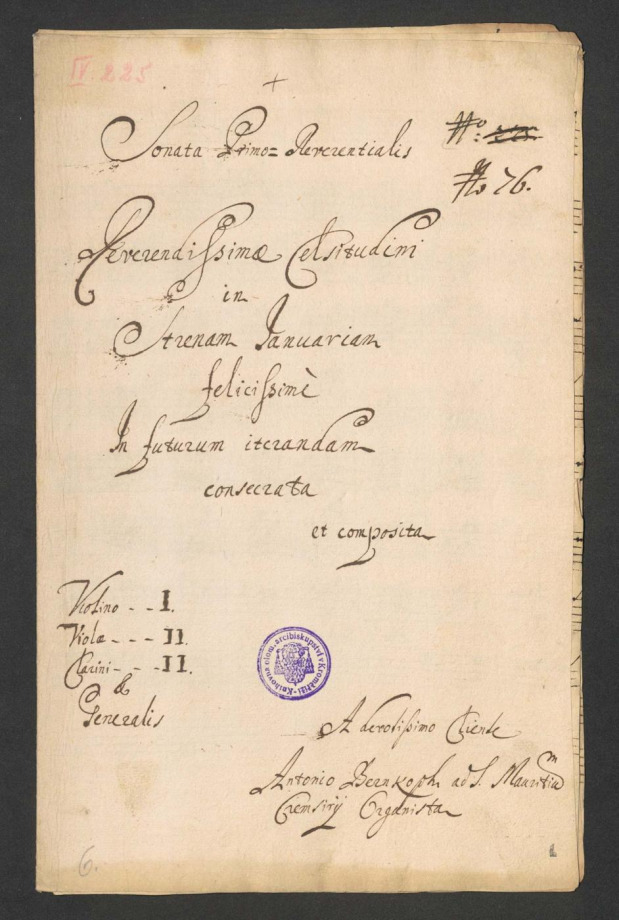 IV. 225
+
Sonata Primo= Reverentialis
No:
No 76.
Reverendissimæ Celsitudini
in
Strenam Januariam
felicissimè
In futurum iterandam
consecrata
et composita
Violino - - I.
Violæ - - - II.
Clarini - - - II.
&
Generalis
Knihovna olom. arcibiskupství v Kroměříži
A devotissimo Cliente
Antonio Bernkoph. ad S. Mauritium
Cremsirÿ Organista
6.
1